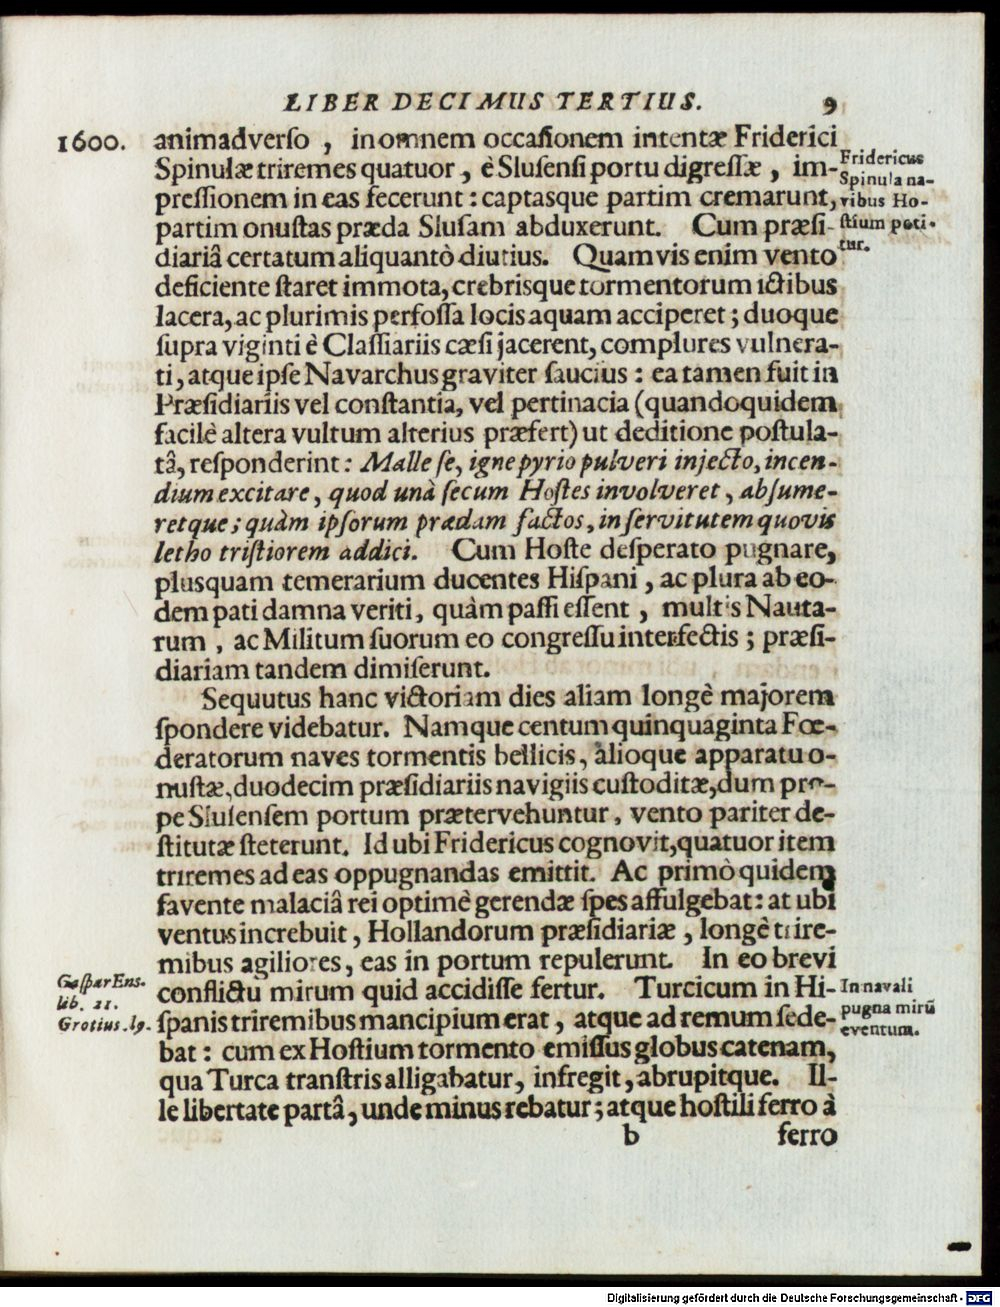 LIBER DECIMUS TERTIUS. 9
1600.
animadverſo, in omnem occaſionem intentæ Friderici
Spinulæ triremes quatuor, è Sluſenſi portu digreſſæ, im-
preſſionem in eas fecerunt: captasque partim cremarunt,
partim onuſtas præda Sluſam abduxerunt. Cum præſi-
diariâ certatum aliquantò diutius. Quamvis enim vento
deficiente ſtaret immota, crebrisque tormentorum ictibus
lacera, ac plurimis perfoſſa locis aquam acciperet; duoque
ſupra viginti è Claſſiariis cæſi jacerent, complures vulnera-
ti, atque ipſe Navarchus graviter ſaucius: ea tamen fuit in
Præſidiariis vel conſtantia, vel pertinacia (quandoquidem
facilè altera vultum alterius præfert) ut deditione poſtula-
tâ, reſponderint: Malle ſe, igne pyrio pulveri injecto, incen-
dium excitare, quod unà ſecum Hoſtes involveret, abſume-
retque; quàm ipſorum prædam factos, in ſervitutem quovis
letho triſtiorem addici. Cum Hoſte deſperato pugnare,
plusquam temerarium ducentes Hiſpani, ac plura ab eo-
dem pati damna veriti, quàm paſſi eſſent, multis Nauta-
rum, ac Militum ſuorum eo congreſſu interfectis; præſi-
diariam tandem dimiſerunt.
Sequutus hanc victoriam dies aliam longè majorem
ſpondere videbatur. Namque centum quinquaginta Fœ-
deratorum naves tormentis bellicis, alioque apparatu o-
nuſtæ, duodecim præſidiariis navigiis cuſtoditæ, dum pro-
pe Sluſenſem portum prætervehuntur, vento pariter de-
ſtitutæ ſteterunt. Id ubi Fridericus cognovit, quatuor item
triremes ad eas oppugnandas emittit. Ac primò quidem
favente malaciâ rei optimè gerendæ ſpes affulgebat: at ubi
ventus increbuit, Hollandorum præſidiariæ, longè trire-
mibus agiliores, eas in portum repulerunt. In eo brevi
conflictu mirum quid accidiſſe fertur. Turcicum in Hi-
ſpanis triremibus mancipium erat, atque ad remum ſede-
bat: cum ex Hoſtium tormento emiſſus globus catenam,
qua Turca tranſtris alligabatur, infregit, abrupitque. Il-
le libertate partâ, unde minus rebatur; atque hoſtili ferro à
b ferro
Fridericus
Spinula na-
vibus Ho-
ſtium poti-
tur.
Gaſpar Ens.
lib. 21.
Grotius. l9.
In navali
pugna mirū
eventum.
Digitalisierung gefördert durch die Deutsche Forschungsgemeinschaft - DFG